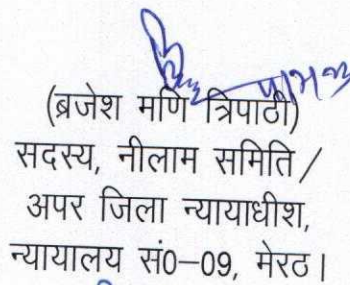 (ब्रजेश मणि त्रिपाठी)
सदस्य, नीलाम समिति /
अपर जिला न्यायाधीश,
न्यायालय सं0–09, मेरठ।